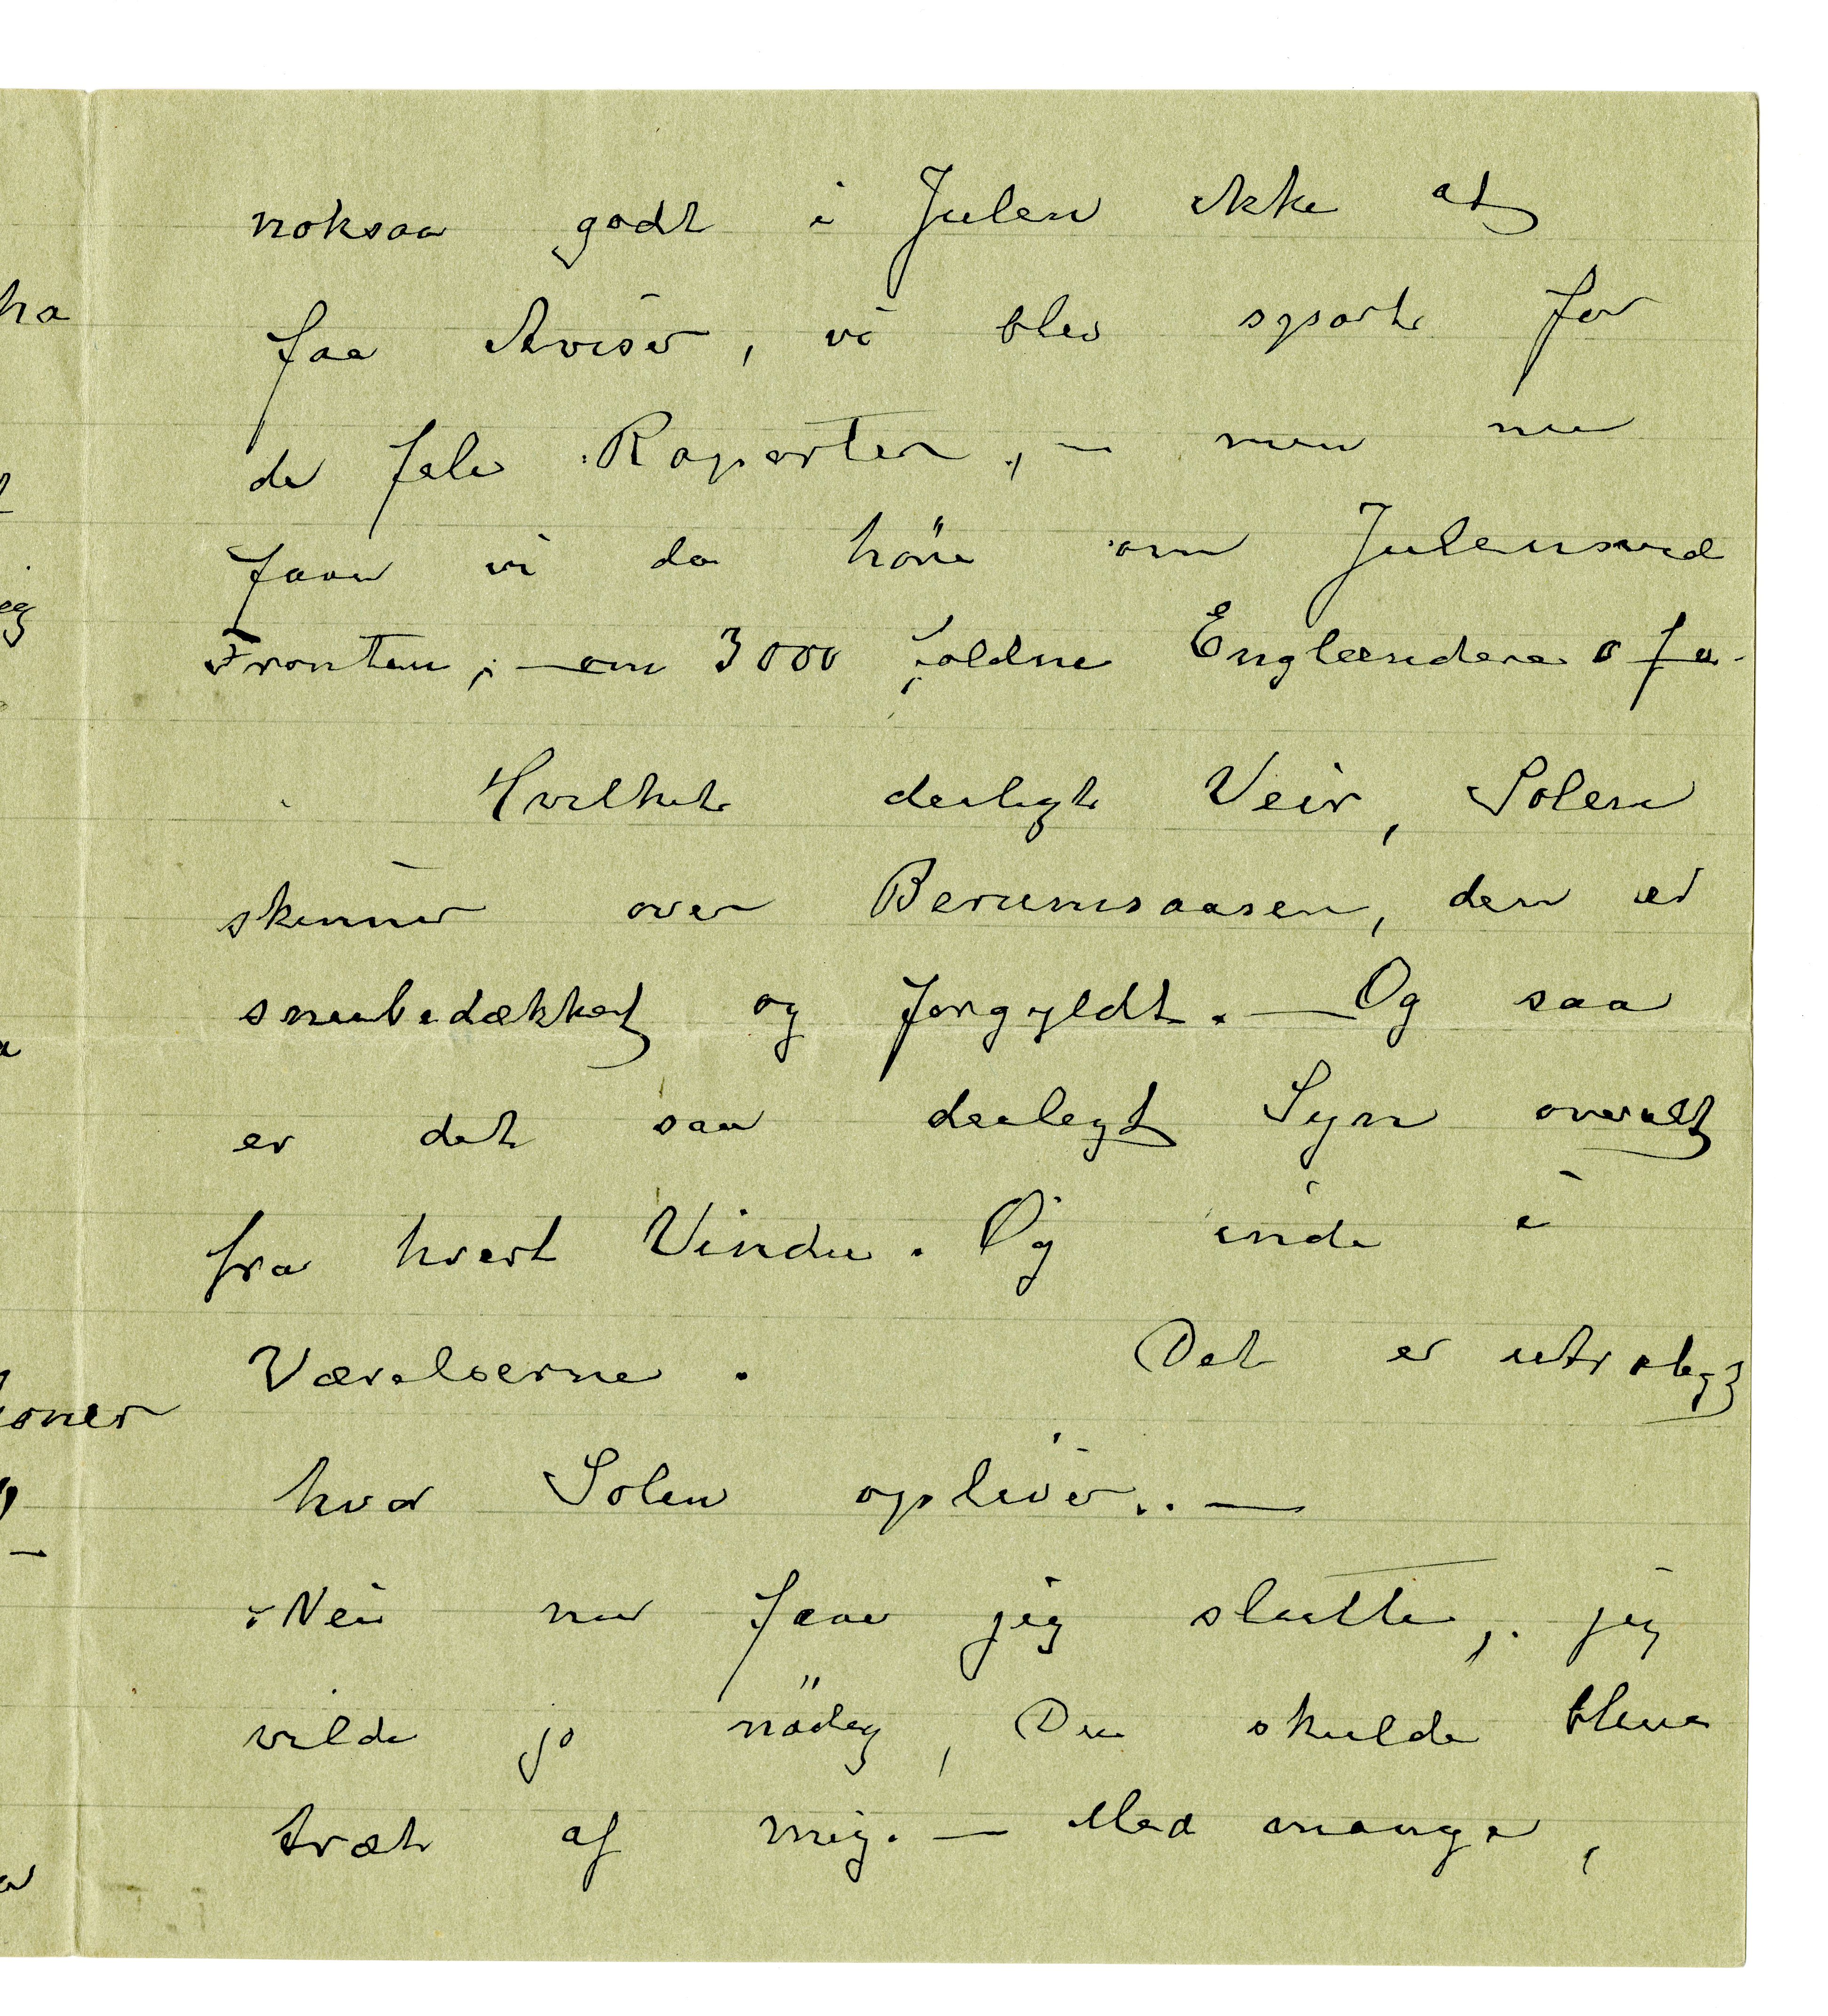 noksaa godt i Julen ikke at
faa Aviser, vi blev spart for
de fæle Raporter, – men nu
faar vi da höre om Julen ved
Fronten, – om 3000 faldne Englændere o s v.
Hvilket deiligt Veir, Solen
skinner over Berumsaasen, den er
sneebedækket og forgyldt. — Og saa
er det saa deiligt Syn overalt
fra hvert Vindu. Og inde i
Værelserne. Det er utroligt
hvad Solen opliver. . —
Nei nu faar jeg slutte, jeg
vilde jo nödig, Du skulde blive
træt af mig. — Med mange,
ha
eg
oner